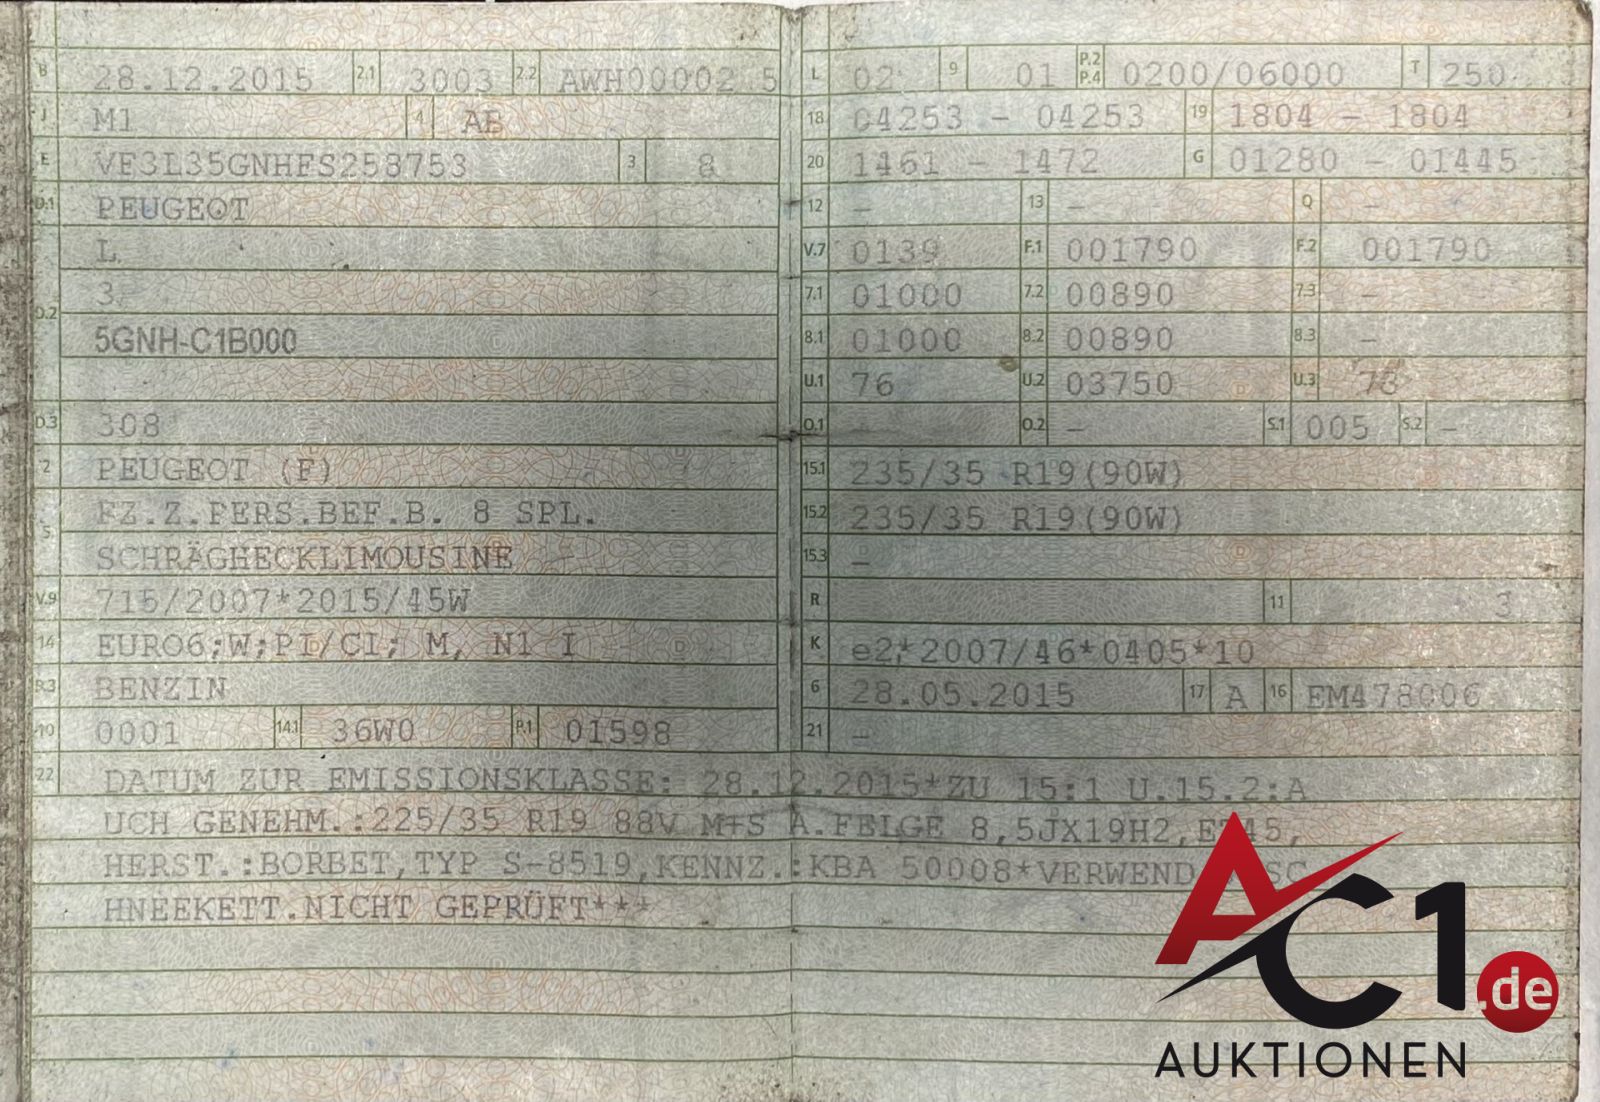 B 28.12.2015 2.1 3003 2.2 AWH00002 5
J M1 4 AB
E VF3L35GNHFS258753 3 8
D.1 PEUGEOT
L
D.2 3
5GNH-C1B000
D.3 308
2 PEUGEOT (F)
5 FZ.Z.PERS.BEF.B. 8 SPL.
SCHRÄGHECKLIMOUSINE -
V.9 715/2007*2015/45W
14 EURO6;W;PI/CI; M, N1 I
P.3 BENZIN
10 0001 14.1 36W0 P.1 01598
L 02 9 01 P.2 P.4 0200/06000 T 250
18 04253 - 04253 19 1804 - 1804
20 1461 - 1472 G 01280 - 01445
12 - 13 - Q -
V.7 0139 F.1 001790 F.2 001790
7.1 01000 7.2 00890 7.3 -
8.1 01000 8.2 00890 8.3 -
U.1 76 U.2 03750 U.3 73
O.1 O.2 - S.1 005 S.2 -
15.1 235/35 R19(90W)
15.2 235/35 R19(90W)
15.3 -
R 11 3
K e2*2007/46*0405*10
6 28.05.2015 17 A 16 EM478006
21 -
22 DATUM ZUR EMISSIONSKLASSE: 28.12.2015*ZU 15:1 U.15.2:A
UCH GENEHM.:225/35 R19 88V M+S A.FELGE 8,5JX19H2,ET45,
HERST.:BORBET,TYP S-8519,KENNZ.:KBA 50008*VERWEND SC
HNEEKETT.NICHT GEPRÜFT***
AC1.de
AUKTIONEN